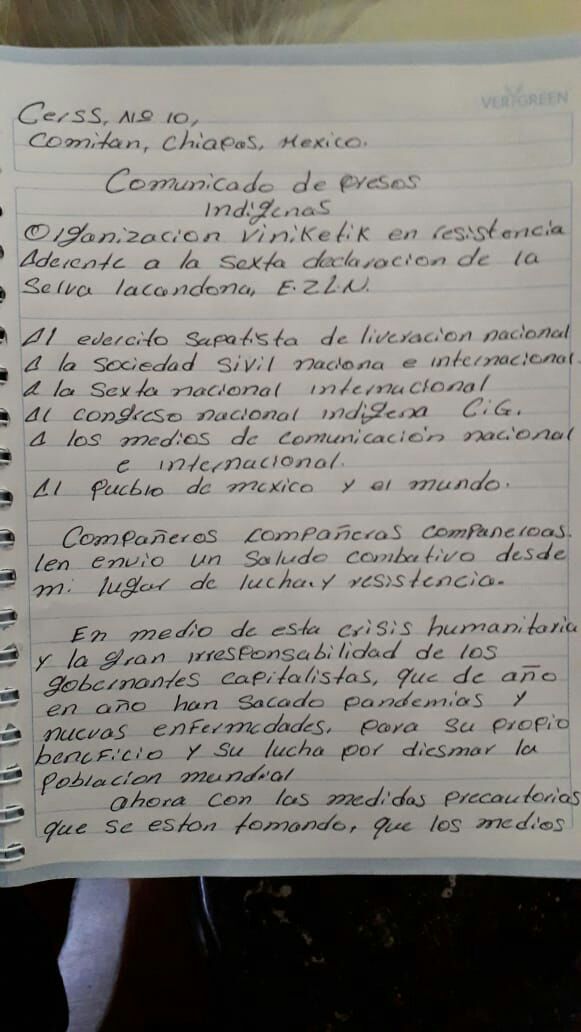 VERYGREEN
Cerss, No 10,
Comitan, Chiapas, Mexico.
Comunicado de presos
Indigenas
Organizacion Viniketik en resistencia
Aderente a la Sexta declaracion de la
Selva lacandona, E.Z.L.N.
Al evercito sapatista de liveracion nacional
A la sociedad sivil naciona e internacional.
A la Sexta nacional internacional
Al congreso nacional indigena C.i.G.
A los medios de comunicación nacional
e internacional.
Al Pueblo de mexico y el mundo.
Compañeros compañeras compañeroas.
len envio un saludo combativo desde
mi lugar de lucha y resistencia.
En medio de esta crisis humanitaria
y la gran irresponsabilidad de los
gobernantes capitalistas, que de año
en año han sacado pandemias y
nuevas enfermedades, para su propio
beneficio y su lucha por diesmar la
poblacion mundial
ahora con las medidas precautorias
que se eston tomando, que los medios